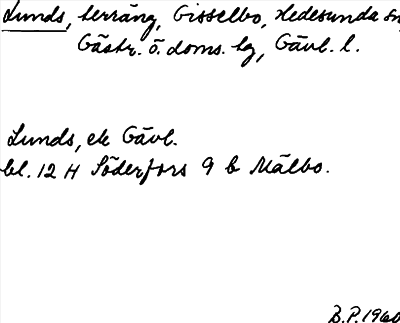 Lunds, terräng, Gisselbo, Hedesunda sn,
Gästr. ö. doms. tg, Gävl. l.
Lunds, ek Gävl.
bl. 12 H Söderfors 9 b Mälbo.
B.P. 1960